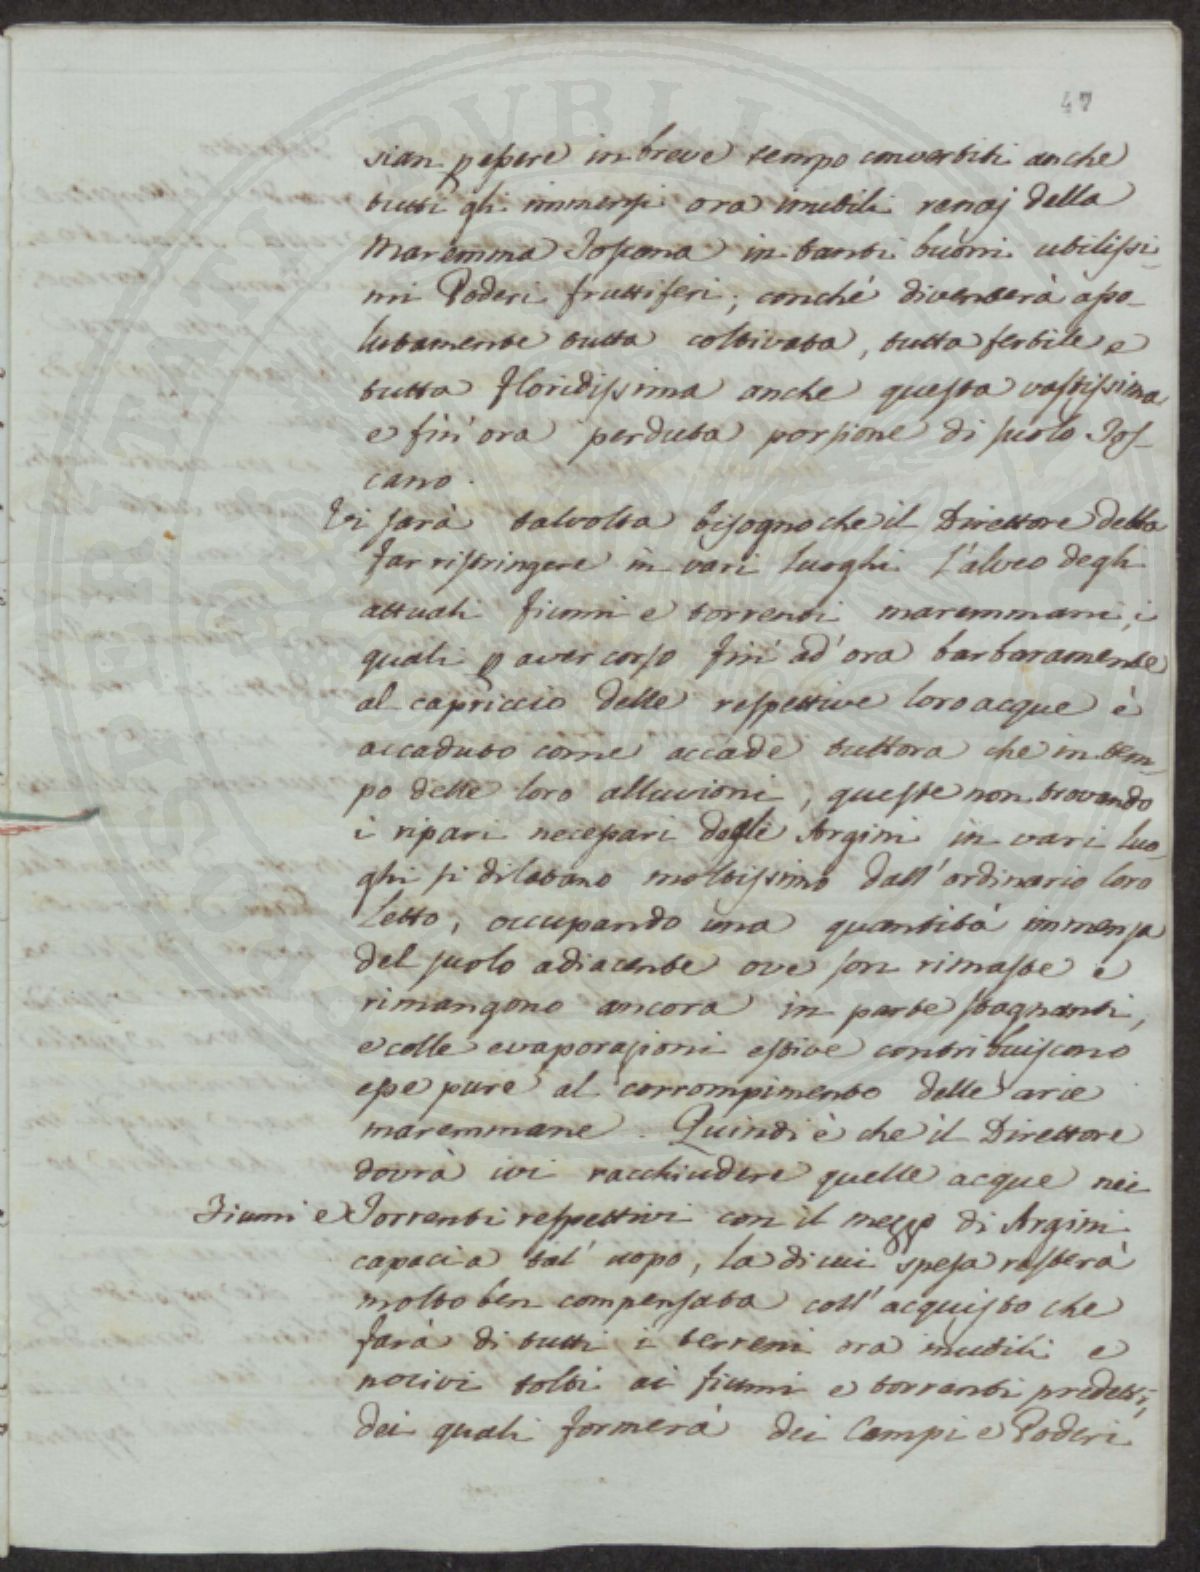 47
sian p essere in breve tempo convertiti anche
tutti gli immensi ora inutili renaj della
Maremma Toscana in tanti buoni utilissi-
mi Poderi fruttiferi, conchè diventerà asso-
lutamente tutta coltivata, tutta fertile e
tutta floridissima anche questa vastissima
e fin' ora perduta porzione di suolo Tos-
cano.
Vi sarà talvolta bisogno che il Direttore della
far ristringere in vari luoghi l'alveo degli
attuali fiumi e torrenti maremmani, i
quali p aver corso fin' ad' ora barbaramente
al capriccio delle respettive loro acque è
accaduto come accade tuttora che in tem-
po delle loro alluvioni, queste non trovando
i ripari necessari degli Argini in vari luo-
ghi si dilatano moltissimo dall' ordinario loro
Letto, occupando una quantità immensa
del suolo adiacente ove son rimaste e
rimangono ancora in parte stagnanti,
e colle evaporazioni estive contribuiscono
esse pure al corrompimento delle arie
maremmane. Quindi è che il Direttore
dovrà ivi racchiudere quelle acque nei
Fiumi e Torrenti respettivi con il mezzo di Argini
capaci a tal' uopo, la di cui spesa resterà
molto ben compensata coll' acquisto che
farà di tutti i terreni ora inutili e
nocivi tolti ai fiumi e torrenti predetti,
dei quali formerà dei Campi e Poderi